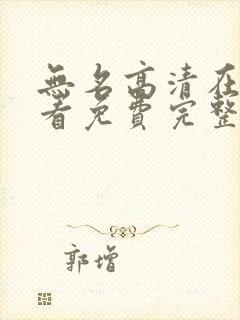 無名高清在
看免費完整
郭增